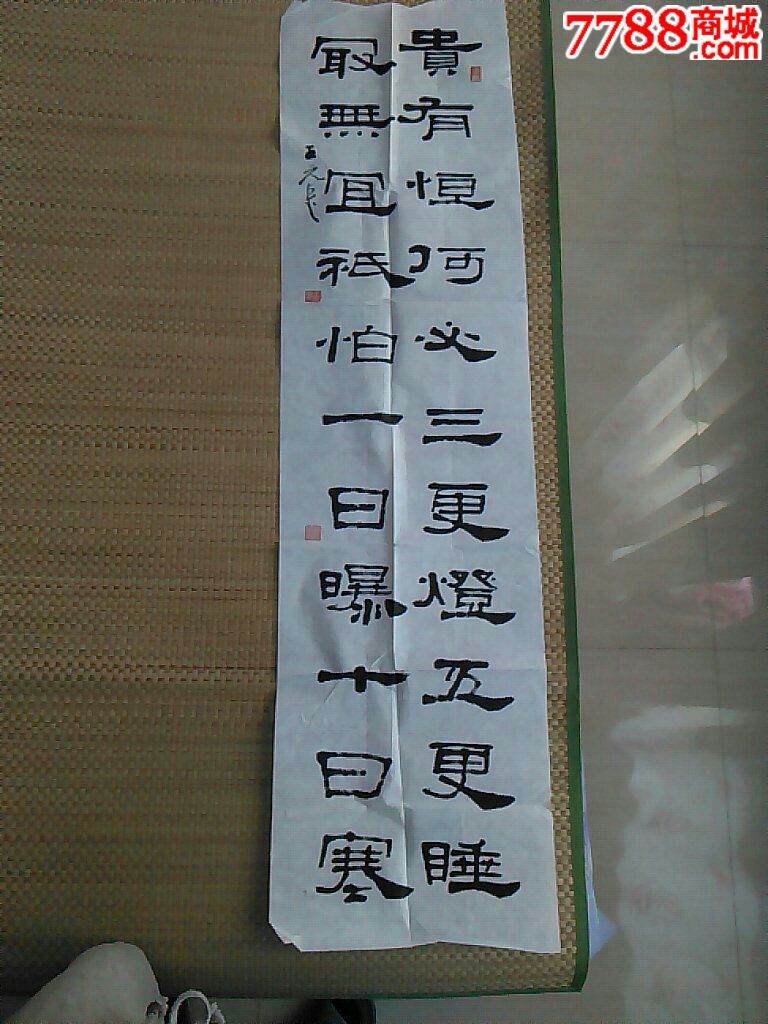 7788商城
.com
貴有恒何必三更燈五更睡
冣無宜祇怕一日曝十日寒